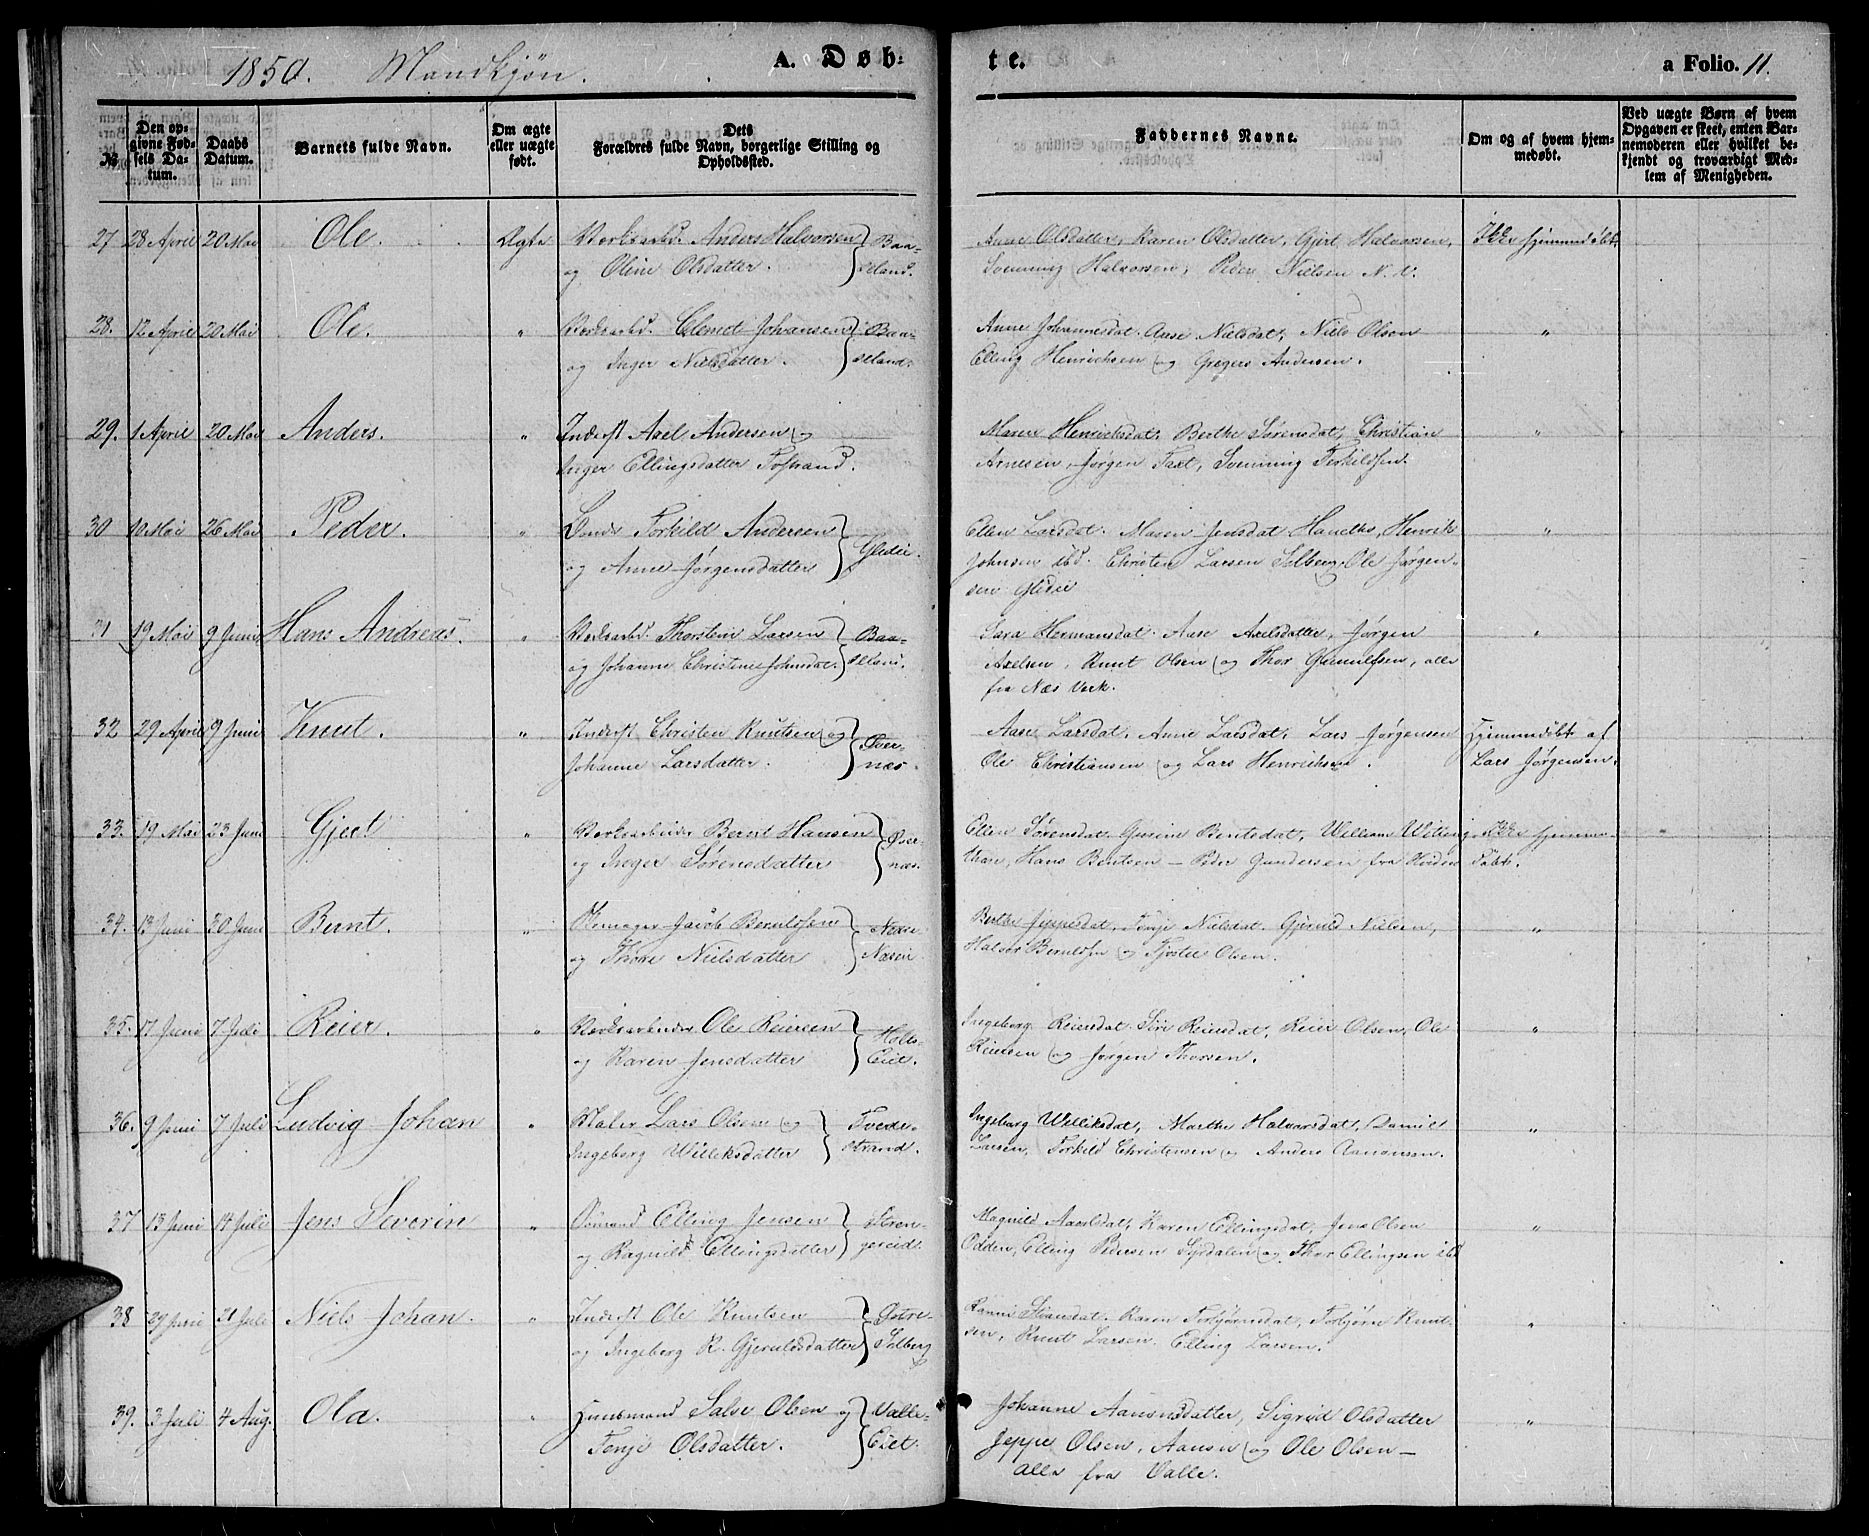 1850. Mandkjøn. A. Døb-
te. a Folio. 11.
No
Den op-
givne Fød-
sels Da-
tum.
Daabs
Datum.
Barnets fulde Navn.
Om ægte
eller uægte
født.
Dets
Forældres fulde Navn, borgerlige Stilling og
Opholdssted.
Faddernes Navne.
Om og af hvem hjem-
medøbt.
Ved uægte Børn af hvem
Opgaven er skeet, enten Bar-
nemoderen eller hvilket be-
kjendt og troværdigt Med-
lem af Menigheden.
27 28 April 20 Mai Ole. Ægte Verksarbd. Anders Halvorsen Baa-
og Oline Olsdatter. seland.
Anne Olsdatter, Karen Olsdatter, Gjert Halvorsen, Ikke hjemmedøbt.
Svenning Halvorsen, Peder Nielsen N. V.
28. 12 April 20 Mai Ole. " Verksarbd. Clemet Johansen Baa-
og Inger Nielsdatter. seland.
Anne Johannesdat. Aase Nielsdat, Niels Olsen "
Elling Henrichsen og Gregers Andersen.
29. 1 April 20 Mai Anders. " Inderst Axel Andersen og
Inger Ellingsdatter Fosstrand.
Maren Henrichsdat. Berthe Sørensdat, Christian "
Arnesen, Jørgen Taxt, Svenning Terkildsen.
30 10 Mai 26 Mai Peder. " Bonde Torkild Andersen
og Anne Jørgensdatter Gledie.
Ellen Larsdat. Maren Jensdat Hanekk, Henrik "
Johnsen ibd. Christen Larsen Solberg, Ole Jørgen-
sen Gledie
31 19 Mai 9 Juni Hans Andreas. " Verksarbd. Thorstein Larsen Baa-
og Johanne Christine Johnsdat. seland.
Sara Hermansdat. Aase Axelsdatter, Jørgen "
Axelsen, Knut Olsen og Thor Gunnulfsen, alle
fra Næs Verk.
32 29 April 9 Juni Knut. " Inderst Christen Knutsen og Øver-
Johanne Larsdatter. næs.
Aase Larsdat, Anne Larsdat, Lars Jørgensen Hjemmedøbt af
Ole Christiansen og Lars Henrichsen. Lars Jørgensen.
33. 19 Mai 23 Juni Gjert " Verksarbeider Bernt Hansen Øver-
og Inger Sørensdatter næs.
Ellen Sørensdat, Gurine Berntsdat, William Ikke hjemme- "
Hans Bentsen — Peder Gundersen fra døbt.
34. 13 Juni 30 Juni Bernt. " Skomager Jacob Berulfsen Nedre
og Thore Nielsdatter Næsie
Berthe Jeppesdat, Tenje Nielsdat. Gjeruld Nielsen, "
Halvor Berulfsen og Tjostel Olsen.
35. 17 Juni 7 Juli Reier. " Verksarbeider Ole Reiersen Holts-
og Karen Jensdatter Eiet.
Ingeborg Reiersdat. Siri Reiersdat, Reier Olsen, Ole "
Reiersen og Jørgen Thorsen.
36. 9 Juni 7 Juli Ludvig Johan " Maler Lars Olsen og Tvede-
Ingeborg Williksdatter strand.
Ingeborg Williksdat, Marthe Halvorsdat, Daniel "
Larsen, Torkild Christensen og Anders Aanonsen.
37 13 Juni 14 Juli Jens Severin " Sømand Elling Jensen Stren-
og Ragnild Ellingsdatter gereid.
Magnild Axelsdat, Karen Ellingsdat, Jens Olsen "
Odden, Elling Pedersen Syrdalen og Thor Ellingsen ibd
38 27 Juni 21 Juli Niels Johan. " Inderst Ole Knutsen Østre-
og Ingeborg K. Gjeruldsdatter Solberg
Karen Torbjørnsdat, Torbjørn Knut- "
sen, Knut Larsen. Elling Larsen.
39. 3 Juli 4 Aug. Ola. " Huusmand Salve Olsen og Valle-
Tenje Olsdatter. Eiet.
Johanne Aanonsdatter, Sigrid Olsdatter "
Jeppe Olsen, Aanon og Ole Olsen —
alle fra Valle.